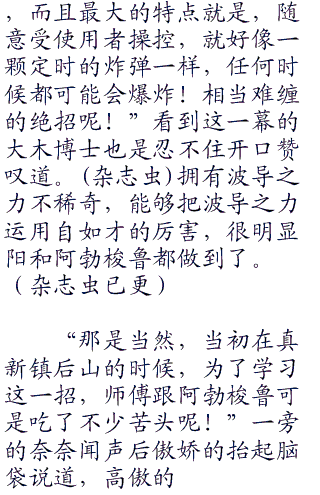 ，而且最大的特点就是，随
意受使用者操控，就好像一
颗定时的炸弹一样，任何时
候都可能会爆炸！相当难缠
的绝招呢！”看到这一幕的
大木博士也是忍不住开口赞
叹道。(杂志虫)拥有波导之
力不稀奇，能够把波导之力
运用自如才的厉害，很明显
阳和阿勃梭鲁都做到了。
（杂志虫已更）
“那是当然，当初在真
新镇后山的时候，为了学习
这一招，师傅跟阿勃梭鲁可
是吃了不少苦头呢！”一旁
的奈奈闻声后傲娇的抬起脑
袋说道，高傲的